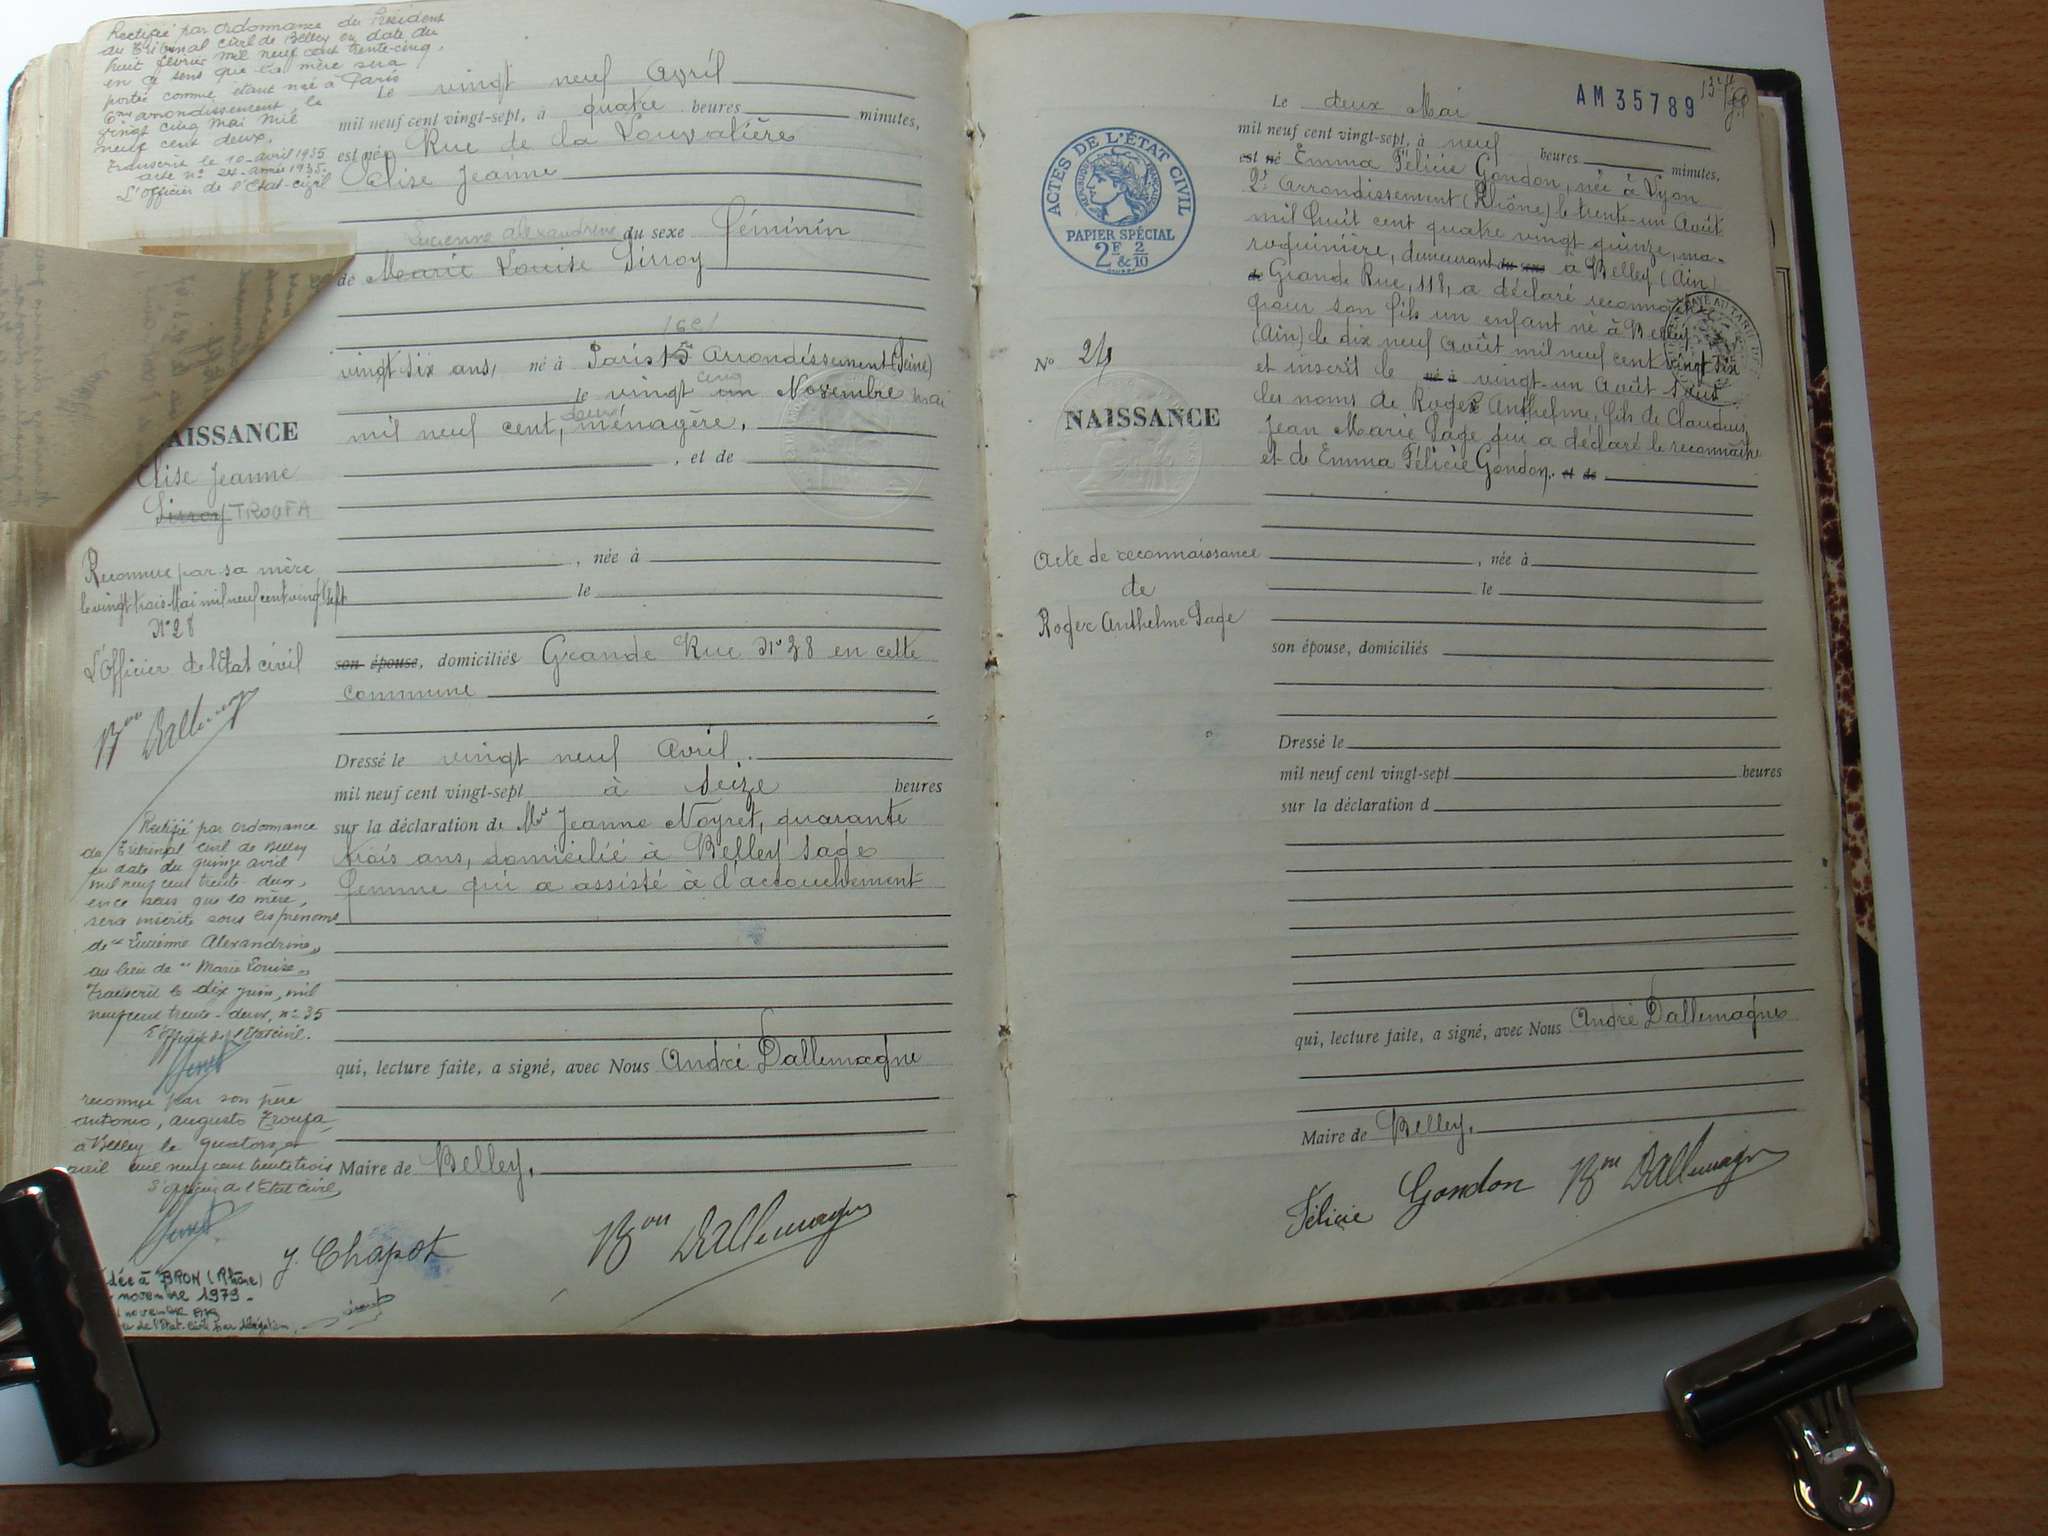 Rectifié par ordonnance du Président
du Tribunal civil de Belley en date du
huit février mil neuf cent trente-cinq,
en ce sens que la mère sera
portée comme étant née à Paris
6me arrondissement le
vingt cinq mai mil
neuf cent deux.
Transcrit le 10 avril 1935
acte n° 24 année 1935.
L'Officier de l'Etat-civil
Le vingt neuf Avril
mil neuf cent vingt-sept, à quatre heures minutes,
est née Rue de la Louvatière
Elise Jeanne
Lucienne Alexandrine du sexe féminin
de Marie Louise Sirroy
vingt six ans, né à Paris 15e Arrondissement (Seine)
le vingt un cinq Novembre mai
mil neuf cent, deux ménagère.
, et de
AISSANCE
Elise Jeanne
Sirroy TROUFA
, née à
le
Reconnue par sa mère
le vingt trois Mai mil neuf cent vingt sept
N° 28
L'Officier de l'Etat civil
Bon Dallemagne
son épouse, domiciliés Grande Rue N° 38 en cette
commune
Dressé le vingt neuf Avril
mil neuf cent vingt-sept à seize heures
sur la déclaration de Me Jeanne Noyret, quarante
trois ans, domicilié à Belley sage
femme qui a assisté à l'accouchement
Rectifié par ordonnance
du Tribunal civil de Belley
en date du quinze avril
mil neuf cent trente-deux,
en ce sens que la mère,
sera inscrite sous les prénoms
de "Lucienne Alexandrine"
au lieu de "Marie Louise"
Transcrit le dix juin, mil
neuf cent trente-deux, n° 35
L'officier de l'Etat civil.
qui, lecture faite, a signé, avec Nous André Dallemagne
reconnue par son père
Antonio, Augusto Troufa
à Belley le quatorze
avril mil neuf cent trente trois
L'officier de l'Etat civil
Maire de Belley.
J. Chapot
Bon Dallemagne
dée à BRON (Rhône)
novembre 1979
novembre 1979
de l'Etat-Civil par délégation,
AM 35789
Le deux Mai
mil neuf cent vingt-sept, à neuf heures minutes,
est né Emma Félicie Gondon, née à Lyon
2e Arrondissement (Rhône) le trente-un Août
mil huit cent quatre vingt quinze, ma-
roquinière, demeurant du sexe à Belley (Ain)
de Grande Rue, 118, a déclaré reconnaître
pour son fils un enfant né à Belley
(Ain) le dix neuf Août mil neuf cent vingt six
et inscrit le né à vingt-un Août sous
les noms de Roger Anthelme, fils de Claudius
Jean Marie Sage qui a déclaré le reconnaître
et de Emma Félicie Gondon. et de
ACTES DE L'ÉTAT CIVIL
RÉPUBLIQUE FRANÇAISE
PAPIER SPÉCIAL
2F & 2/10
N° 24
NAISSANCE
Acte de reconnaissance
de
Roger Anthelme Sage
, née à
le
son épouse, domiciliés
Dressé le
mil neuf cent vingt-sept heures
sur la déclaration d
qui, lecture faite, a signé, avec Nous André Dallemagne
Maire de Belley.
Félicie Gondon
Bon Dallemagne